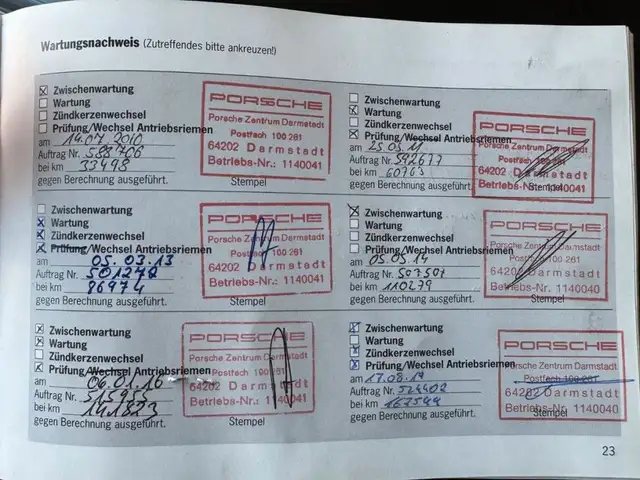 Wartungsnachweis (Zutreffendes bitte ankreuzen!)
Zwischenwartung
Wartung
Zündkerzenwechsel
Prüfung/Wechsel Antriebsriemen
am 14.07 2010
Auftrag Nr. 588766
bei km 33498
gegen Berechnung ausgeführt.
PORSCHE
Porsche Zentrum Darmstadt
Postfach 100 261
64202 Darmstadt
Betriebs-Nr.: 1140041
Stempel
Zwischenwartung
Wartung
Zündkerzenwechsel
Prüfung/Wechsel Antriebsriemen
am 25.05.11
Auftrag Nr. 592677
bei km 60763
gegen Berechnung ausgeführt.
PORSCHE
Porsche Zentrum Darmstadt
Postfach 100 261
64202 Darmstadt
Betriebs-Nr.: 1140041
Stempel
Zwischenwartung
Wartung
Zündkerzenwechsel
Prüfung/Wechsel Antriebsriemen
am 05.03.13
Auftrag Nr. 501248
bei km 86974
gegen Berechnung ausgeführt.
PORSCHE
Porsche Zentrum Darmstadt
Postfach 100 261
64202 Darmstadt
Betriebs-Nr.: 1140041
Stempel
Zwischenwartung
Wartung
Zündkerzenwechsel
Prüfung/Wechsel Antriebsriemen
am 05.05.14
Auftrag Nr. 507501
bei km 110279
gegen Berechnung ausgeführt.
PORSCHE
Porsche Zentrum Darmstadt
Postfach 100 261
64202 Darmstadt
Betriebs-Nr.: 1140040
Stempel
Zwischenwartung
Wartung
Zündkerzenwechsel
Prüfung/Wechsel Antriebsriemen
am 06.01.16
Auftrag Nr.
bei km 141823
gegen Berechnung ausgeführt.
PORSCHE
Porsche Zentrum Darmstadt
Postfach 100 261
64202 Darmstadt
Betriebs-Nr.: 1140041
Stempel
Zwischenwartung
Wartung
Zündkerzenwechsel
Prüfung/Wechsel Antriebsriemen
am
Auftrag Nr.
bei km 167544
gegen Berechnung ausgeführt.
PORSCHE
Porsche Zentrum Darmstadt
Postfach 100 261
64202 Darmstadt
Betriebs-Nr.: 1140040
Stempel
23